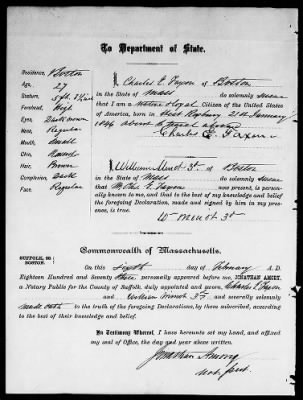 To Department of State.
Residence, Boston
Age, 27
Stature, 5 ft.
Forehead, High
Eyes, Dark brown
Nose, Regular
Mouth, Small
Chin, Round
Hair, Brown
Complexion, Dark
Face, Regular
I, Charles E. Faxon of Boston
in the State of Mass do solemnly swear
that I am a Native & loyal Citizen of the United States
of America, born in West Roxbury 21st January
1846
Charles E. Faxon
I, William Minot 3d of Boston
in the State of Mass do solemnly swear
that Mr Chas E Faxon now present, is personally
known to me, and that to the best of my knowledge and belief
the foregoing Declaration, made and signed by him in my
presence, is true.
W Minot 3d
Commonwealth of Massachusetts.
SUFFOLK, SS:
BOSTON.
On this Sixth day of February A. D.
Eighteen Hundred and Seventy Three personally appeared before me, JONATHAN AMORY,
a Notary Public for the County of Suffolk, duly appointed and sworn, Charles E. Faxon
and William Minot 3d and severally solemnly
made oath to the truth of the foregoing Declarations, by them subscribed, according
to the best of their knowledge and belief.
In Testimony Whereof, I have hereunto set my hand, and affixed
my seal of Office, the day and year above written.
Jonathan Amory